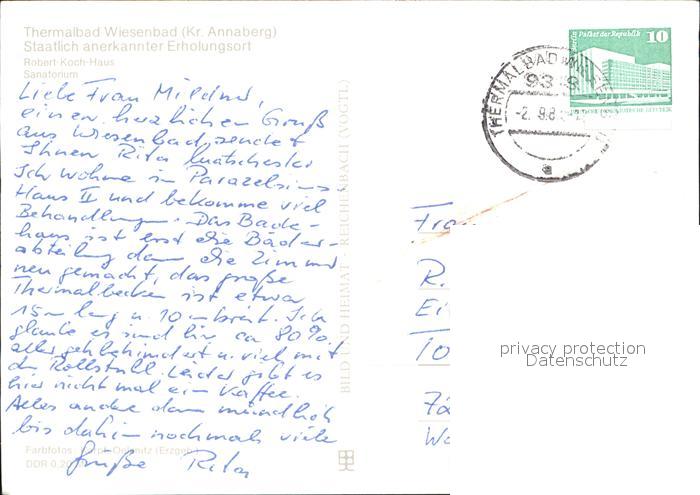 Thermalbad Wiesenbad (Kr. Annaberg)
Staatlich anerkannter Erholungsort
Robert-Koch-Haus
Sanatorium
Liebe Frau
einen herzlichen Gruß
aus Wiesenbad, sendet
Ihnen Rita
Ich wohne in Parazelsius-
Haus II und bekomme viel
Behandlungen. Das Bade-
haus ist erst die Bäder-
abteilung dann die Zimmer
neu gemacht, das große
Thermalbecken ist etwa
15 m lang u. 10 m breit. Ich
glaube es sind hier ca 80%
alles gehbehindert u. viel mit
dem Rollstuhl. Leider gibt es
hier nicht mal ein Kaffee.
Alles andere dann mündlich
bis dahin nochmals viele
Grüße Rita
Farbfotos
DDR 0,20
BILD UND HEIMAT · REICHENBACH (VOGTL)
Berlin Palast der Republik
10
THERMALBAD WIESENBAD
-2. 9.8
a
Frau
R.
Ei
10
We
privacy protection
Datenschutz